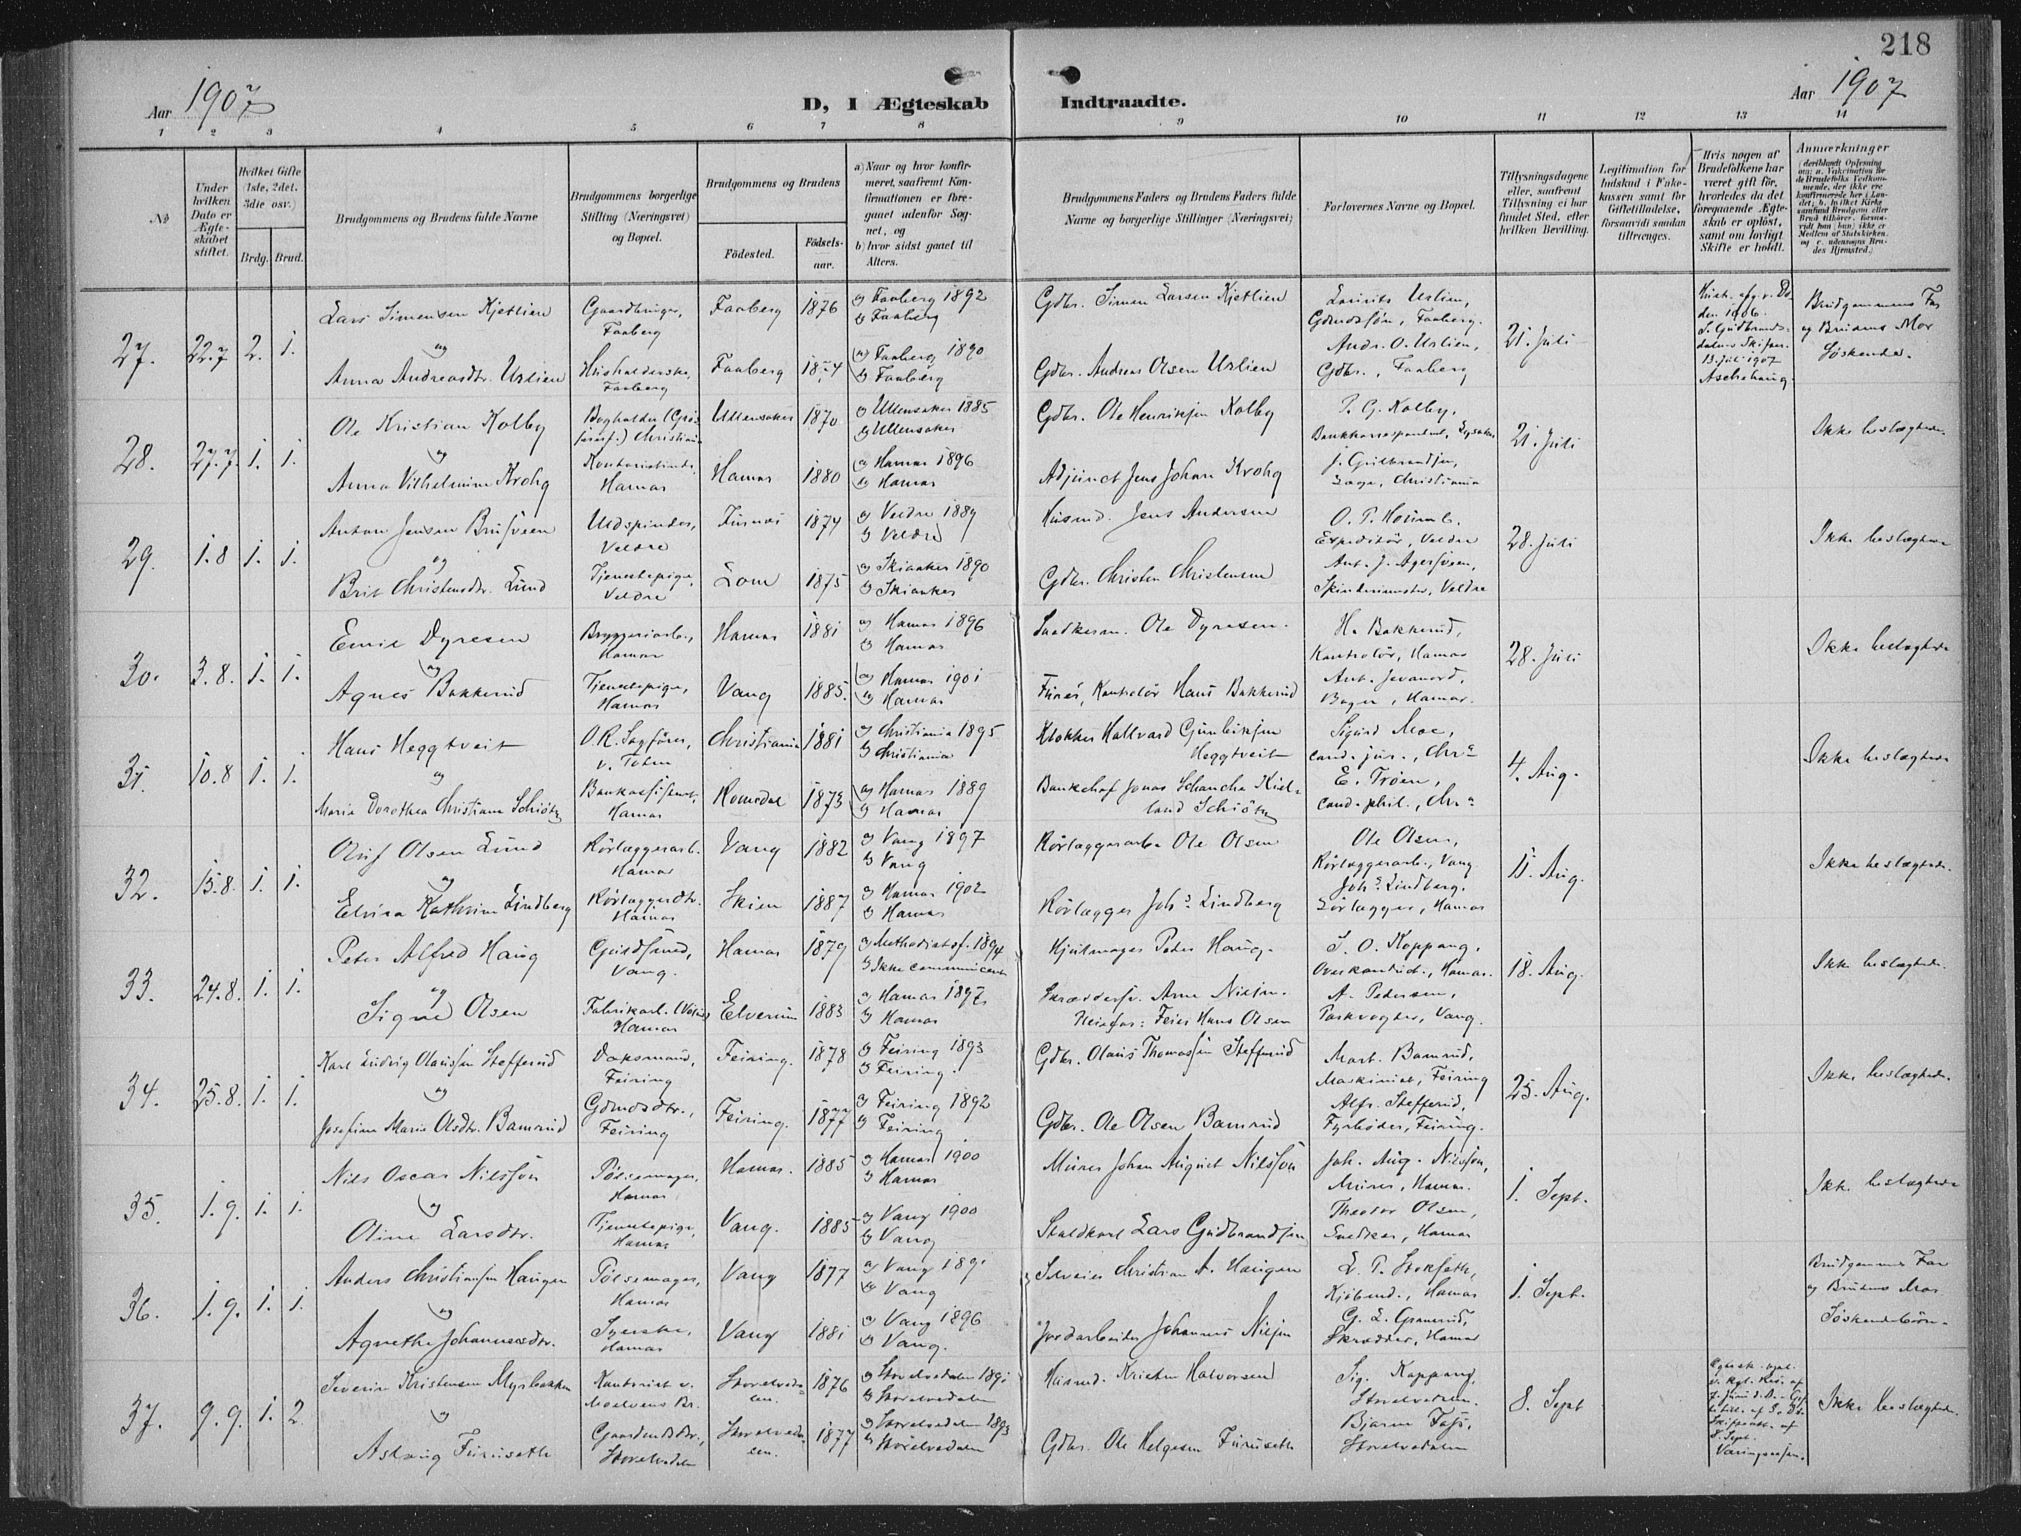 218
Aar 1907
D, I Ægteskab
Indtraadte.
Aar 1907
1 2 3 4 5 6 7 8 9 10 11 12 13 14
№
Under hvilken Dato er Ægteskabet stiftet.
Hvilket Gifte (1ste, 2det, 3die osv.)
Brdg. Brud.
Brudgommens og Brudens fulde Navne
Brudgommens borgerlige Stilling (Næringsvei) og Bopæl.
Brudgommens og Brudens
Fødested.
Fødselsaar.
a) Naar og hvor konfirmeret, saafremt Konfirmationen er foregaaet udenfor Sognet, og
b) hvor sidst gaaet til Alters.
Brudgommens Faders og Brudens Faders fulde Navne og borgerlige Stillinger (Næringsvei)
Forlovernes Navne og Bopæl.
Tillysningsdagene eller, saafremt Tillysning ei har fundet Sted, efter hvilken Bevilling.
Legitimation for Indskud i Enkekassen samt for Giftetilladelse, forsaavidt saadan tiltrænges.
Hvis nogen af Brudefolkene har været gift før, hvorledes da det foregaaende Ægteskab er opløst, samt om lovligt Skifte er holdt.
Anmærkninger
27. 22.7 2. 1.
Lars Simensen Kjetlien
Gaardbruger, Faaberg
Faaberg 1876
a) Faaberg 1892
b) Faaberg
Gdbr. Simen Larsen Kjetlien
Laurits Uslien,
Gdmdssøn, Faaberg.
21. Juli
13. Juli 1907
Brudgommens Far og Brudens Mor Søskende.
og
Anna Andreasdtr. Uslien
Husholderske, Faaberg
Faaberg 1874
a) Faaberg 1890
b) Faaberg
Gdbr. Andreas Olsen Uslien
Andr. O. Uslien,
Gdbr., Faaberg
28. 27.7 1. 1.
Ole Kristian Kolby
Ullensaker 1870
a) Ullensaker 1885
b) Ullensaker
Gdbr. Ole Henriksen Kolby
P. G. Kolby,
21. Juli
Ikke beslægtede.
og
Anna Vilhelmine Krohg
Hamar
Hamar 1880
a) Hamar 1896
b) Hamar
Adjunct Jens Johan Krohg
J. Gulbrandsen,
Christiania
29. 1.8 1. 1.
Anton Jensen Brusveen
Uldspinder, Veldre
Furnes 1874
a) Veldre 1889
b) Veldre
Husmd. Jens Andersen
Expeditør, Veldre
28. Juli
Ikke beslægtede
og
Brit Christensdtr. Lund
Tjenestepige, Veldre
Lom 1875
a) Skiaaker 1890
b) Skiaaker
Gdbr. Christen Christensen
Veldre
30. 3.8. 1. 1.
Emil Dyresen
Bryggeriarb., Hamar
Hamar 1881
a) Hamar 1896
b) Hamar
Snedkerm. Ole Dyresen.
H. Bakkerud,
Kontrolør, Hamar
28. Juli
Ikke beslægtede
og
Agnes Bakkerud
Tjenestepige, Hamar
Vang 1885.
a) Hamar 1901
b) Hamar
Kontrolør Hans Bakkerud
Bager, Hamar.
31. 10.8 1. 1.
Hans Heggtveit
O.R. Sagfører, v. Toten
Christiania 1881
a) Christiania 1895
b) Christiania
Klokker Hallvard Gunleiksen Heggtveit
Sigurd Moe,
cand. jur., Chra
4. Aug.
Ikke beslægtede
og
Maria Dorothea Christiane Schiøtz
Bankassistent, Hamar
Romedal 1873
a) Hamar 1889
b) Hamar
Bankchef Jonas Schancke Kielland Schiøtz
E. Trøen,
cand. phil., Chra
32. 15.8. 1. 1.
Oluf Olsen Lund
Rørlæggerarb. Hamar
Vang 1882
a) Vang 1897
b) Vang
Rørlæggerarb. Ole Olsen
Ole Olsen,
Rørlæggerarb., Vang
11. Aug.
Ikke beslægtede.
og
Elvira Kathrine Lindberg
Rørlæggerdtr. Hamar
Skien 1887
a) Hamar 1902
b) Hamar
Rørlægger Johs. Lindberg
Johs. Lindberg.
Rørlægger, Hamar
33. 24.8. 1. 1.
Peter Alfred Haug
Guldsmed, Vang.
Hamar 1879
a) Methodistsf. 1894
b) Ikke communicert
Hjulmager Peder Haug.
S. O. Koppang,
Overkonduct., Hamar.
18. Aug.
Ikke beslægtede.
og
Signe Olsen
Hamar
Elverum 1883
a) Hamar 1897
b) Hamar
Skræddersv. Arne Nilsen.
Pleiefar: Feier Hans Olsen
A. Pedersen,
Parkvogter, Vang.
34. 25.8. 1. 1.
Karl Ludvig Olaussen Stefferud
Feiring
Feiring. 1878
a) Feiring 1893
b) Feiring.
Gdbr. Olaus Thomassen Stefferud
Mart. Bamrud,
Maskinist, Feiring
25. Aug.
Ikke beslægtede.
og
Josefine Marie Olsdtr. Bamrud
Gdmdsdtr., Feiring
Feiring. 1877
a) Feiring 1892
b) Feiring
Gdbr. Ole Olsen Bamrud
Alfr. Stefferud,
Fyrbøder, Feiring.
35. 1.9. 1. 1.
Nils Oscar Nilssøn
Pølsemager, Hamar
Hamar. 1885
a) Hamar 1900
b) Hamar
Murer Johan August Nilssøn
Joh. Aug. Nilssøn,
Murer, Hamar.
1. Sept.
Ikke beslægtede
og
Oline Larsdtr.
Tjenestepige, Hamar
Vang. 1885
a) Vang 1900
b) Vang
Staldkarl Lars Gudbrandsen
Theodor Olsen,
Snedker, Hamar
36. 1.9. 1. 1.
Anders Christiansen Haugen
Pølsemager, Hamar
Vang 1877
a) Vang 1891
b) Vang
Selveier Christian A. Haugen
L. P. Stokseth,
Kjøbmd., Hamar
1. Sept.
Brudgommens Far og Brudens Mor Søskendebørn.
og
Agnethe Johannesdtr.
Syerske, Hamar
Vang 1881
a) Vang 1896
b) Vang.
Jordarbeider Johannes Nilsen
Skrædder, Hamar
37. 9.9. 1. 2.
Severin Kristensen Myrbakken
Storelvedalen. 1876
a) Storelvedalen 1891
b) Storelvedalen
Husmd. Kristen Halvorsen
Sig. Koppang,
Storelvedalen.
8. Sept
Ikke beslægtede.
og
Aslaug Furuseth
Gaardmdsdtr., Storelvedalen
Storelvedalen. 1877
a) Storelvedalen 1893
b) Storelvedalen
Gdbr. Ole Helgesen Furuseth
Storelvedalen